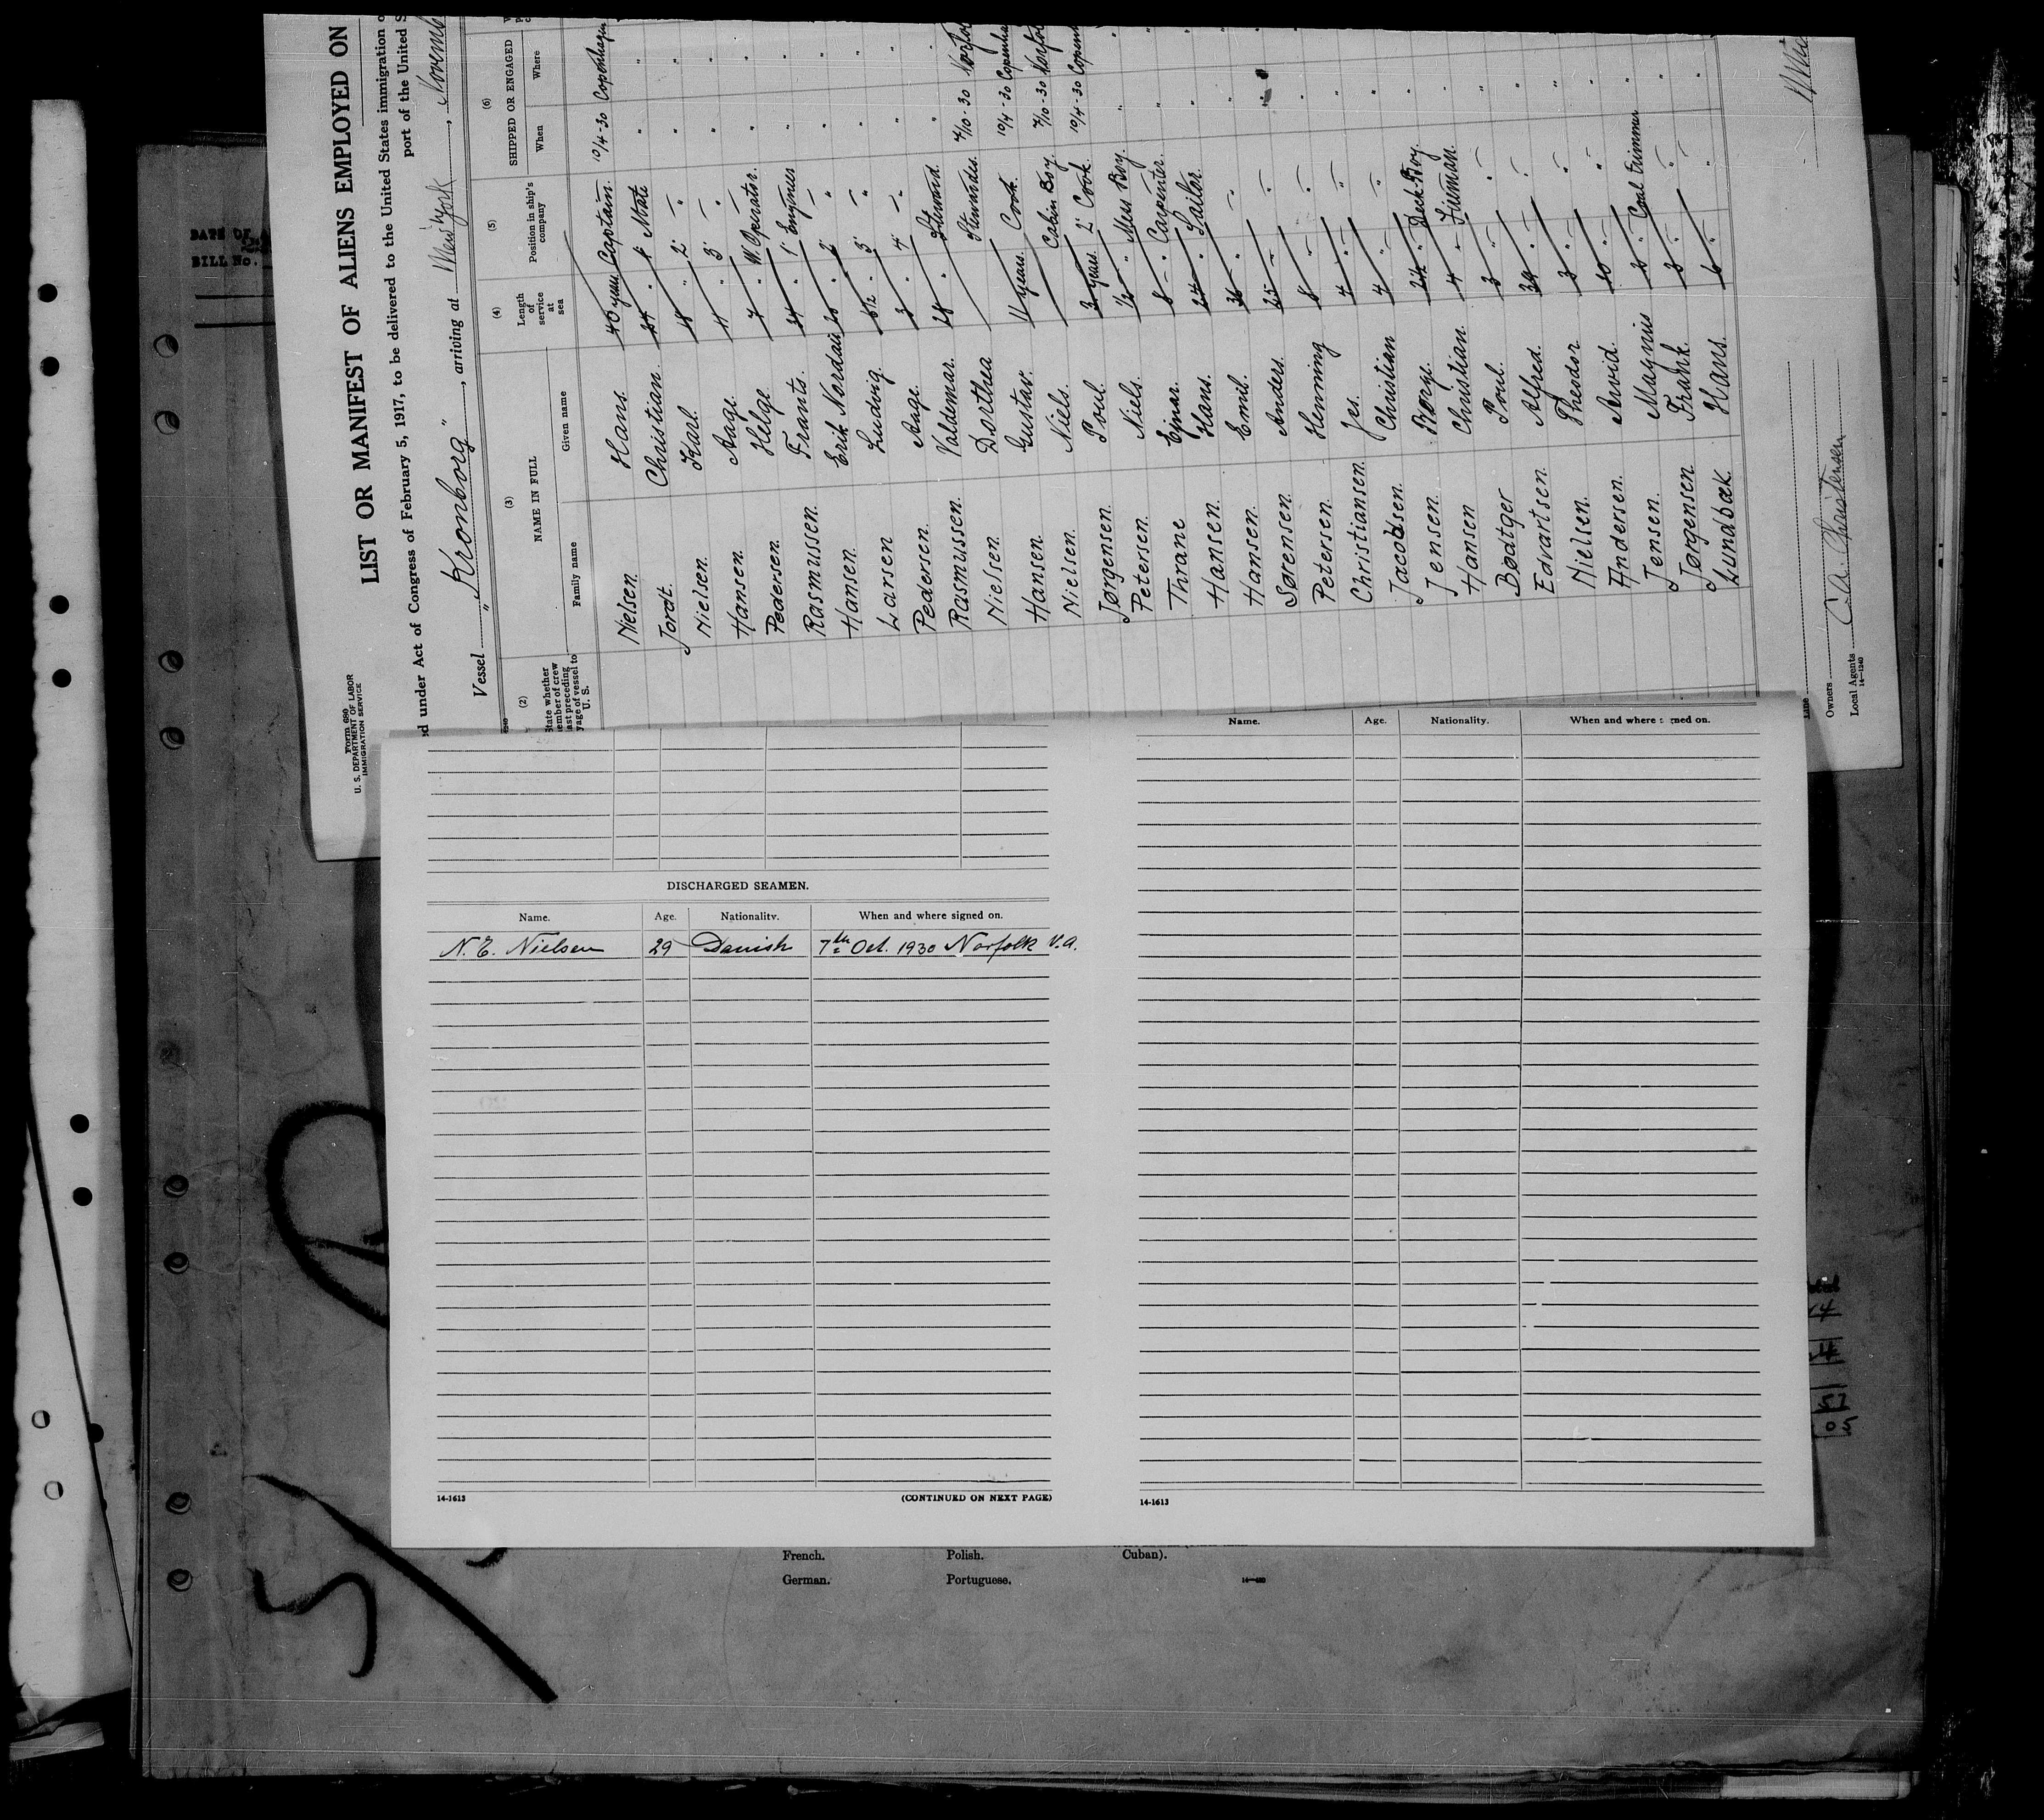 Form 680
U. S. DEPARTMENT OF LABOR
IMMIGRATION SERVICE
LIST OR MANIFEST OF ALIENS EMPLOYED ON
under Act of Congress of February 5, 1917, to be delivered to the United States immigration
port of the United
Vessel "Kronborg", arriving at New York,
(2) (3) (4) (5) (6)
NAME IN FULL
SHIPPED OR ENGAGED
State whether member of crew last preceding voyage of vessel to U. S.
Family name Given name Length of service at sea Position in ship's company When Where
Nielsen. Hans. 40 years Captain. 19/4-30 Copenhagen
Jorat. Christian. 24 " 1' Mate " "
Nielsen. Karl. 2' " " "
Hansen. Aage. 3' " " "
Pedersen. Helge. 7 " W. Operator. " "
Rasmussen. Frants. 1' Engineer " "
Hansen. Erik Nordau 2' " " "
Larsen Ludvig. 6½ " 3' " " "
Pedersen. Aage. 3 " 4' " " "
Rasmussen. Valdemar. Steward. " "
Nielsen. Dorthea Stewardis. 7/10-30
Hansen. Gustav. 11 years. Cook. 19/4-30
Nielsen. Niels. Cabin Boy. 7/10-30
Jørgensen. Poul. 3 years. 2' Cook. 19/4-30
Petersen. Niels. ½ " Mess Boy. "
Thrane Ejnar. 8 " Carpenter. "
Hansen. Hans. 24 " Sailor. "
Hansen. Emil. 36 " " "
Sørensen. Anders. " "
Petersen. Henning 8 " " "
Christiansen. Jes. 4 " " "
Jacobsen. Christian 4 " " "
Jensen. Børge. Deck-Boy. "
Hansen Christian. 4 " Fireman. "
Bødtger Poul. 3 " " "
Edvartsen. Alfred. " "
Nielsen. Theodor 3 " " "
Andersen. Arvid. 10 " " "
Jensen. Magnus Coal Trimmer "
Jørgensen Frank. 3 " " "
Lundbæk. Hans. 6 " " "
Line
Owners C. A. Christensen
Local Agents
14-1240
DATE OF
BILL No.
DISCHARGED SEAMEN.
Name. Age. Nationality. When and where signed on.
N. E. Nielsen 29 Danish 7th Oct. 1930 Norfolk V.a.
14-1613 (CONTINUED ON NEXT PAGE)
Name. Age. Nationality. When and where signed on.
14-1613
French. Polish. Cuban).
German. Portuguese.